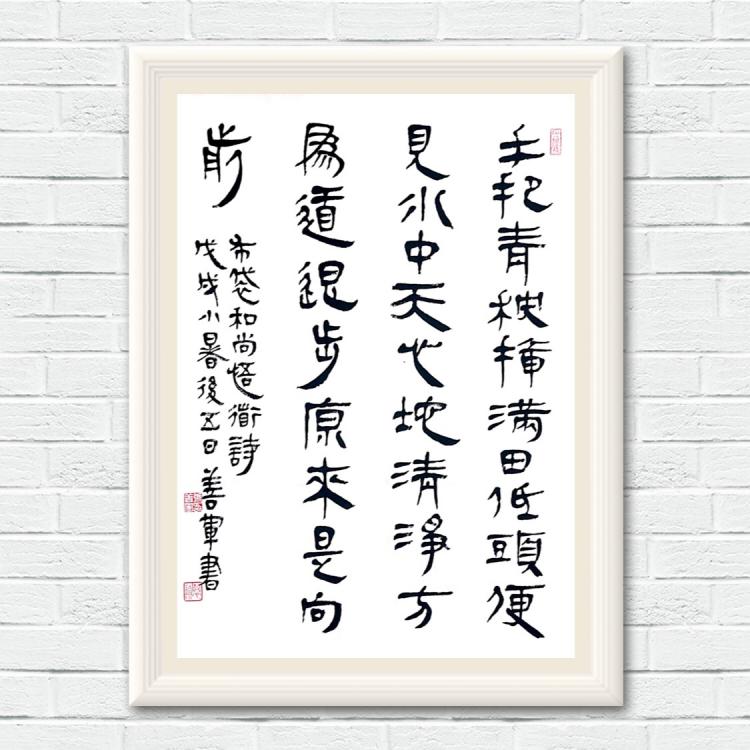 手把青秧插滿田低頭便
見水中天心地清淨方
為道退步原來是向
前
布袋和尚悟衜詩
戊戌小暑後五日善軍書